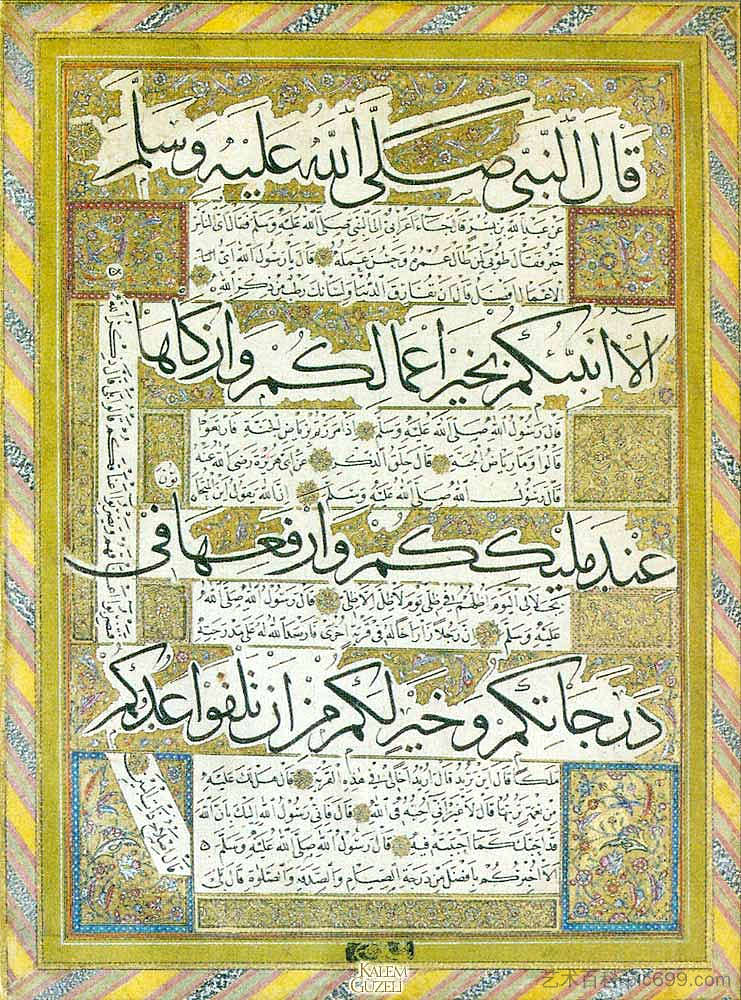 قال النبى صلى الله عليه وسلم
عن عبد الله بن بسر قال جاء اعرابى الى النبى صلى الله عليه وسلم فقال اى الناس
خير فقال طوبى لمن طال عمره وحسن عمله قال يا رسول الله اى
الاعمال افضل قال ان تفارق الدنيا ولسانك رطب من ذكر الله
الا انبئكم بخير اعمالكم وازكاها
قال رسول الله صلى الله عليه وسلم اذا مررتم برياض الجنة فارتعوا
قالوا وما رياض الجنة قال حلق الذكر عن ابى هريرة رضى الله عنه
قال رسول الله صلى الله عليه وسلم ان الله يقول اين المتحابون
عند مليككم وارفعها فى
بجلالى اليوم اظلهم فى ظلى يوم لا ظل الا ظلى قال رسول الله صلى الله
عليه وسلم ان رجلا زار اخا له فى قرية اخرى فارصد الله له على مدرجته
درجاتكم وخير لكم من ان تلقوا عدوكم
ملكا قال اين تريد قال اريد اخا لى فى هذه القرية قال هل لك عليه
من نعمة تربها قال لا غير انى احبه فى الله قال فانى رسول الله اليك بان الله
قد احبك كما احببته فيه قال رسول الله صلى الله عليه وسلم
الا اخبركم بافضل من درجة الصيام والصدقة والصلوة قال بلى
قال اصلاح ذات البين
KALEM
GÜZELİ
艺术百科-